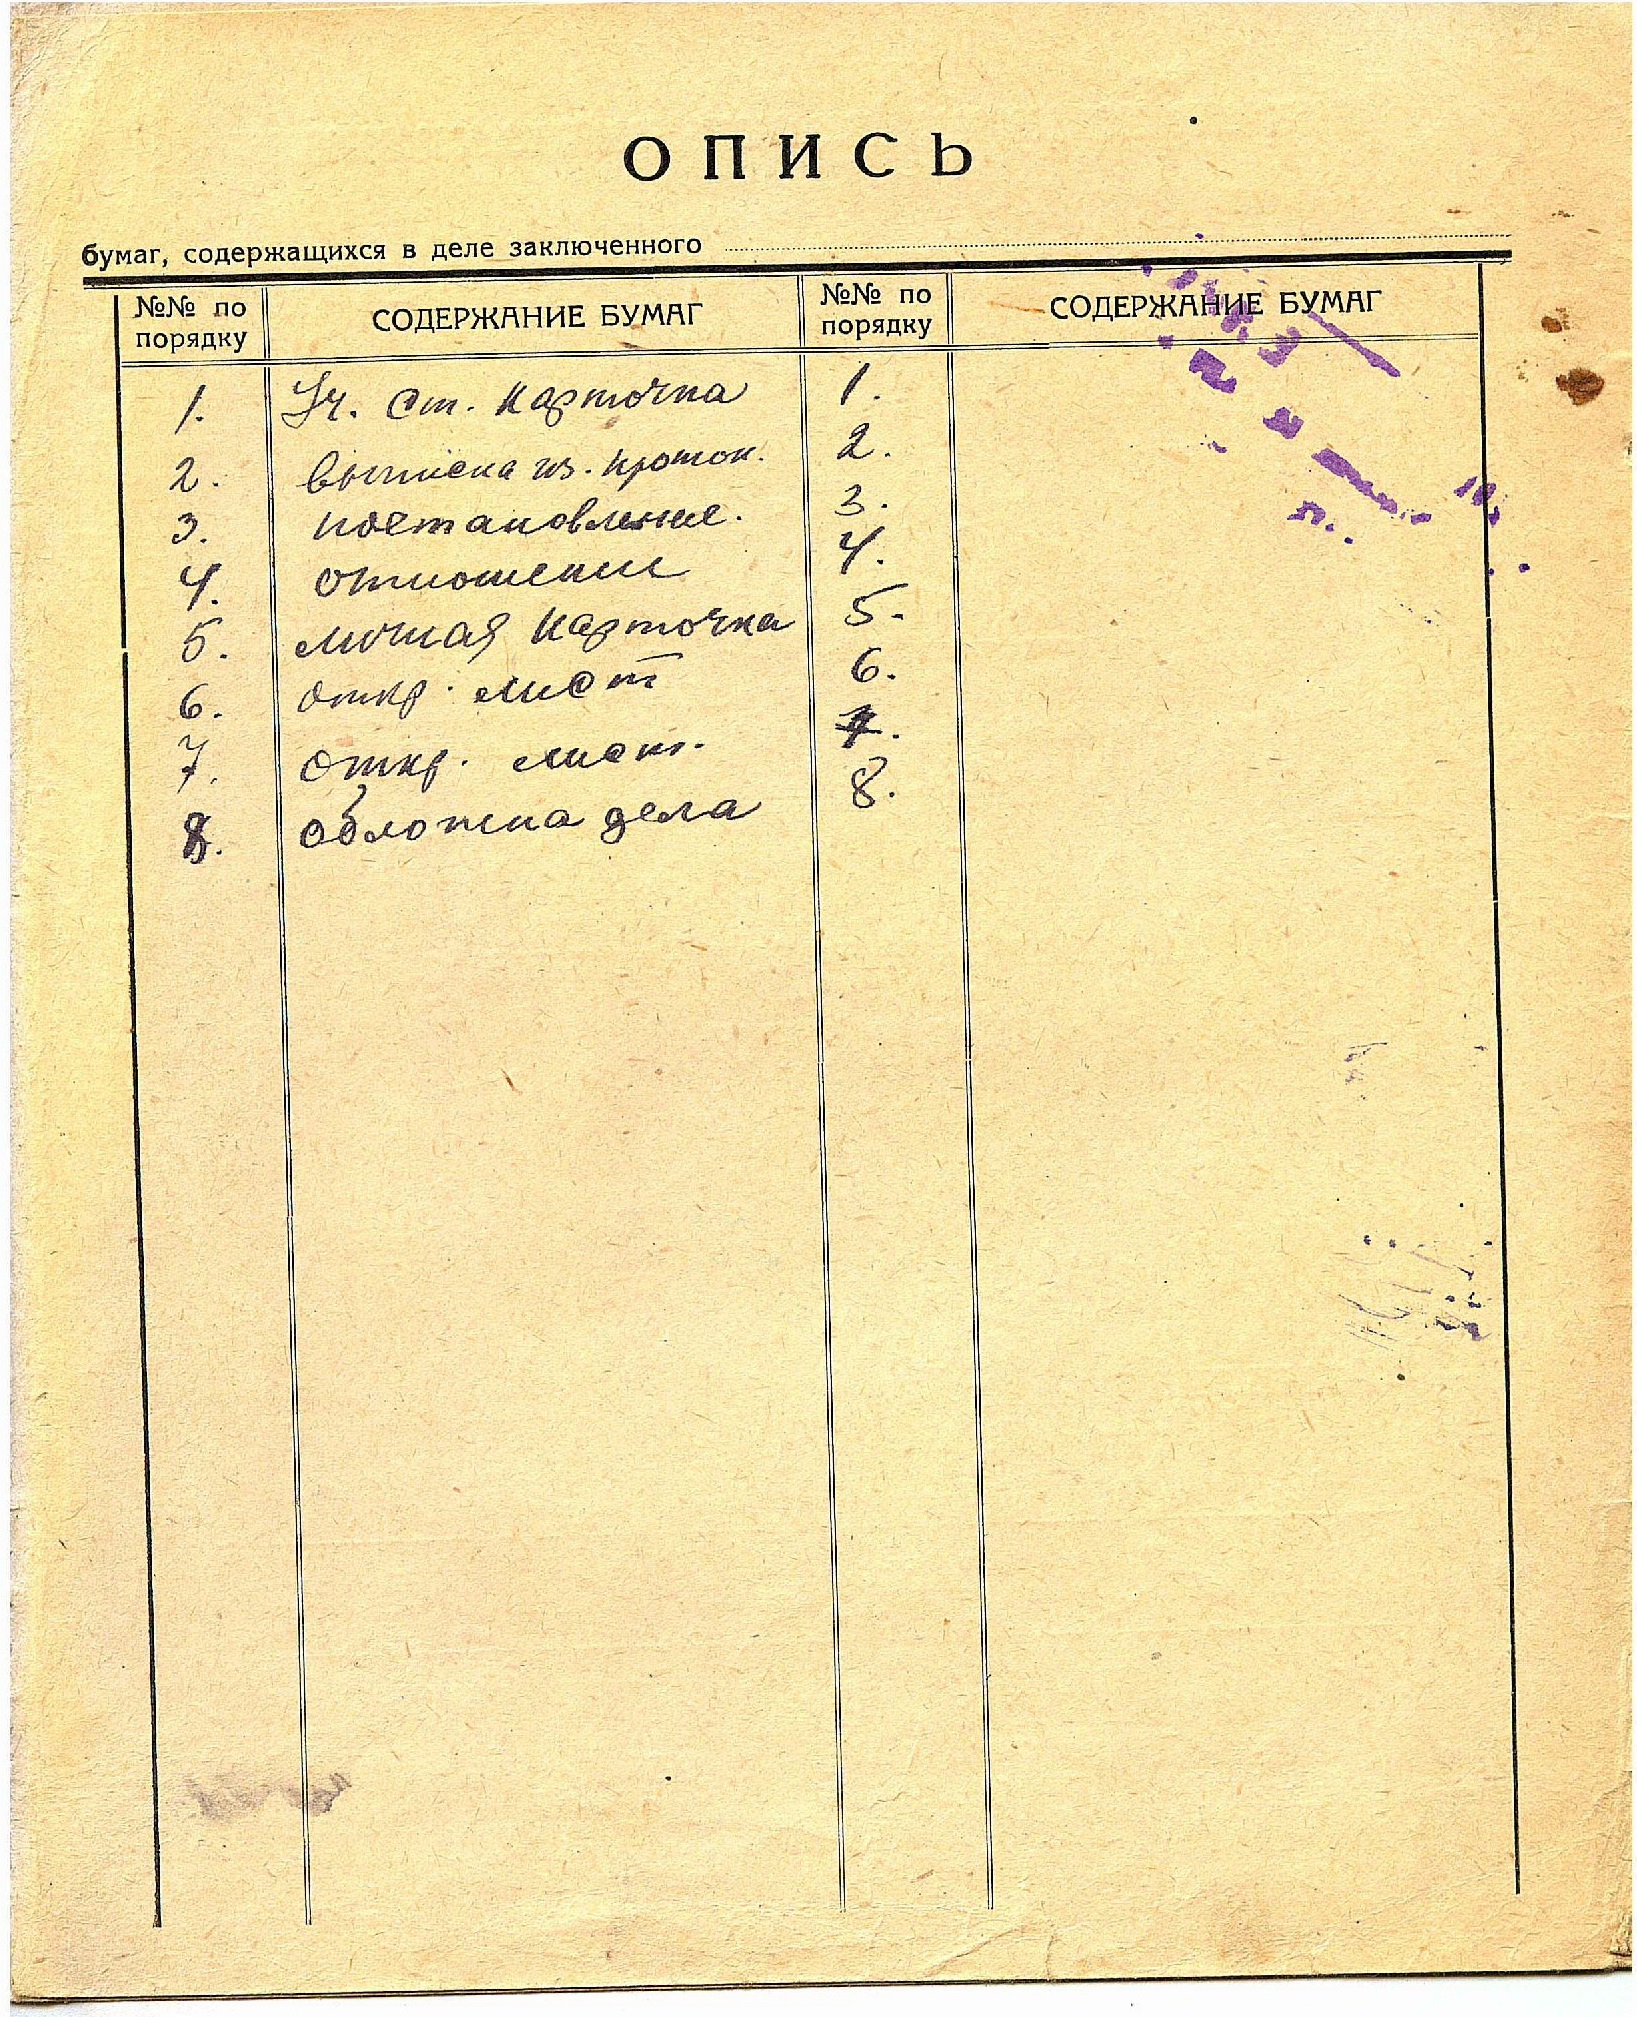 ОПИСЬ
бумаг, содержащихся в деле заключенного
№№ по порядку СОДЕРЖАНИЕ БУМАГ №№ по порядку СОДЕРЖАНИЕ БУМАГ
1. Уч. Ст. Карточка 1.
2. Выписка из. проток. 2.
3. постановление. 3.
4. отношение 4.
5. личная Карточка 5.
6. откр. лист 6.
7. откр. лист. 7.
8. обложка дела 8.